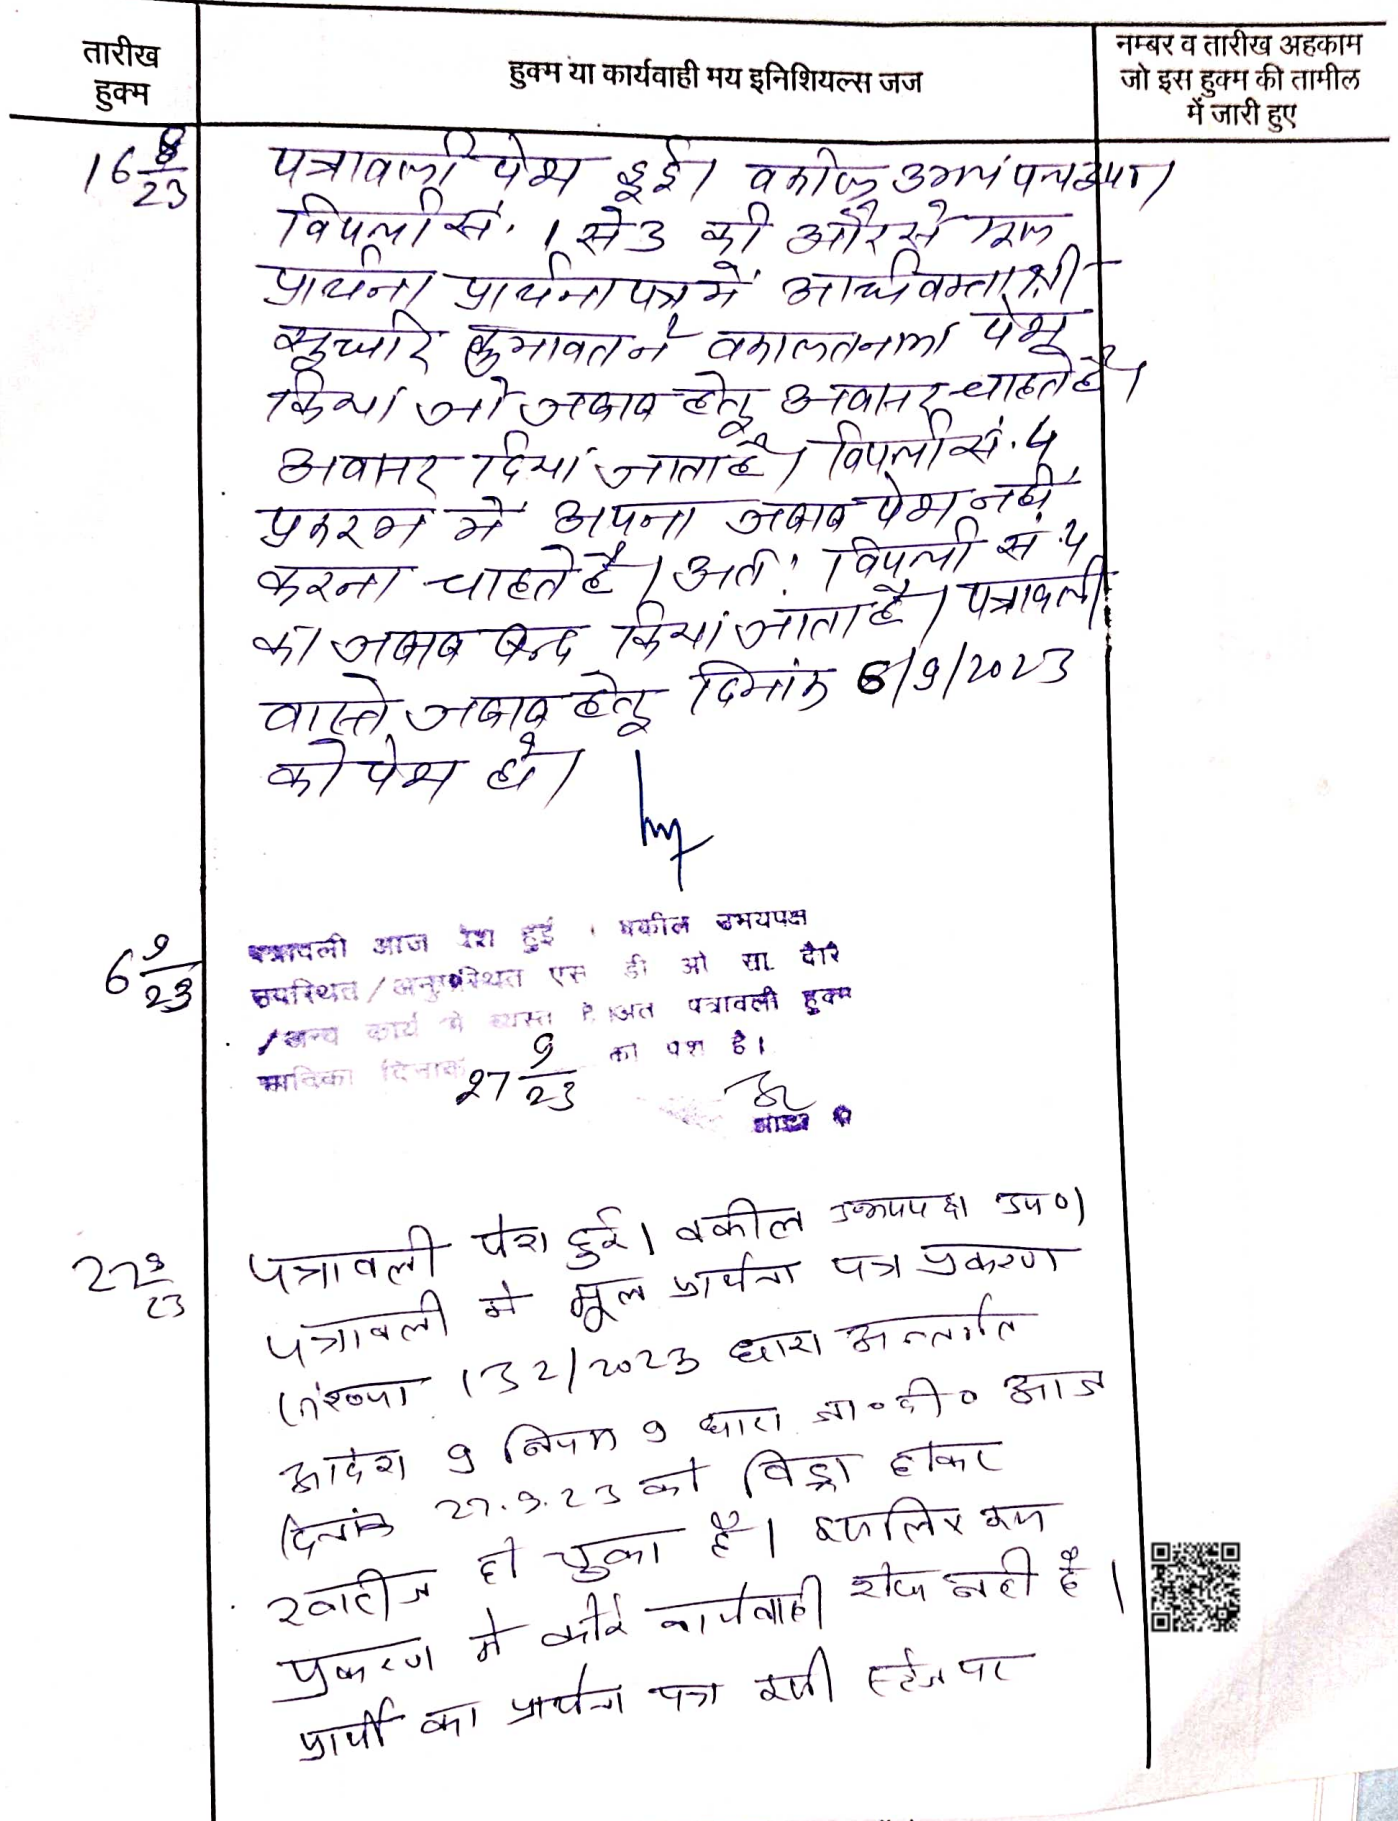 तारीख
हुक्म
हुक्म या कार्यवाही मय इनिशियल्स जज
नम्बर व तारीख अहकाम
जो इस हुक्म की तामील
में जारी हुए
16 8/23
पत्रावली पेश हुई। वकील
विपक्षी सं. 1 से 3 की और से
प्रार्थना प्रार्थना पत्र में अधिवक्ता श्री
ने वकालतनामा पेश
किया जो जवाब हेतु अवसर चाहते है।
अवसर दिया जाता है। विपक्षी सं. 4
प्रकरण में अपना जवाब पेश नहीं
करना चाहते है। अतः विपक्षी सं. 4
का जवाब बन्द किया जाता है। पत्रावली
वास्ते जवाब हेतु दिनांक 6/9/2023
को पेश हो।
6 9/23
पत्रावली आज पेश हुई । वकील उभयपक्ष
उपस्थित/अनुपस्थित एस डी ओ सा. दौरे
/अन्य कार्य मे व्यस्त है। अत पत्रावली हुक्म
दिनांक 27 9/23 को पेश है।
27 9/23
पत्रावली पेश हुई। वकील उभयपक्ष उप०।
पत्रावली मे मूल प्रार्थना पत्र प्रकरण
संख्या 132/2023 धारा अन्तर्गत
आदेश 9 नियम 9 धारा जा०दी० आज
दिनांक 27.9.23 को विड्रा होकर
खारीज हो चुका है। इसलिए इस
प्रकरण मे कोई कार्यवाही शेष नही है।
प्रार्थी का प्रार्थना पत्र इसी स्टेज पर